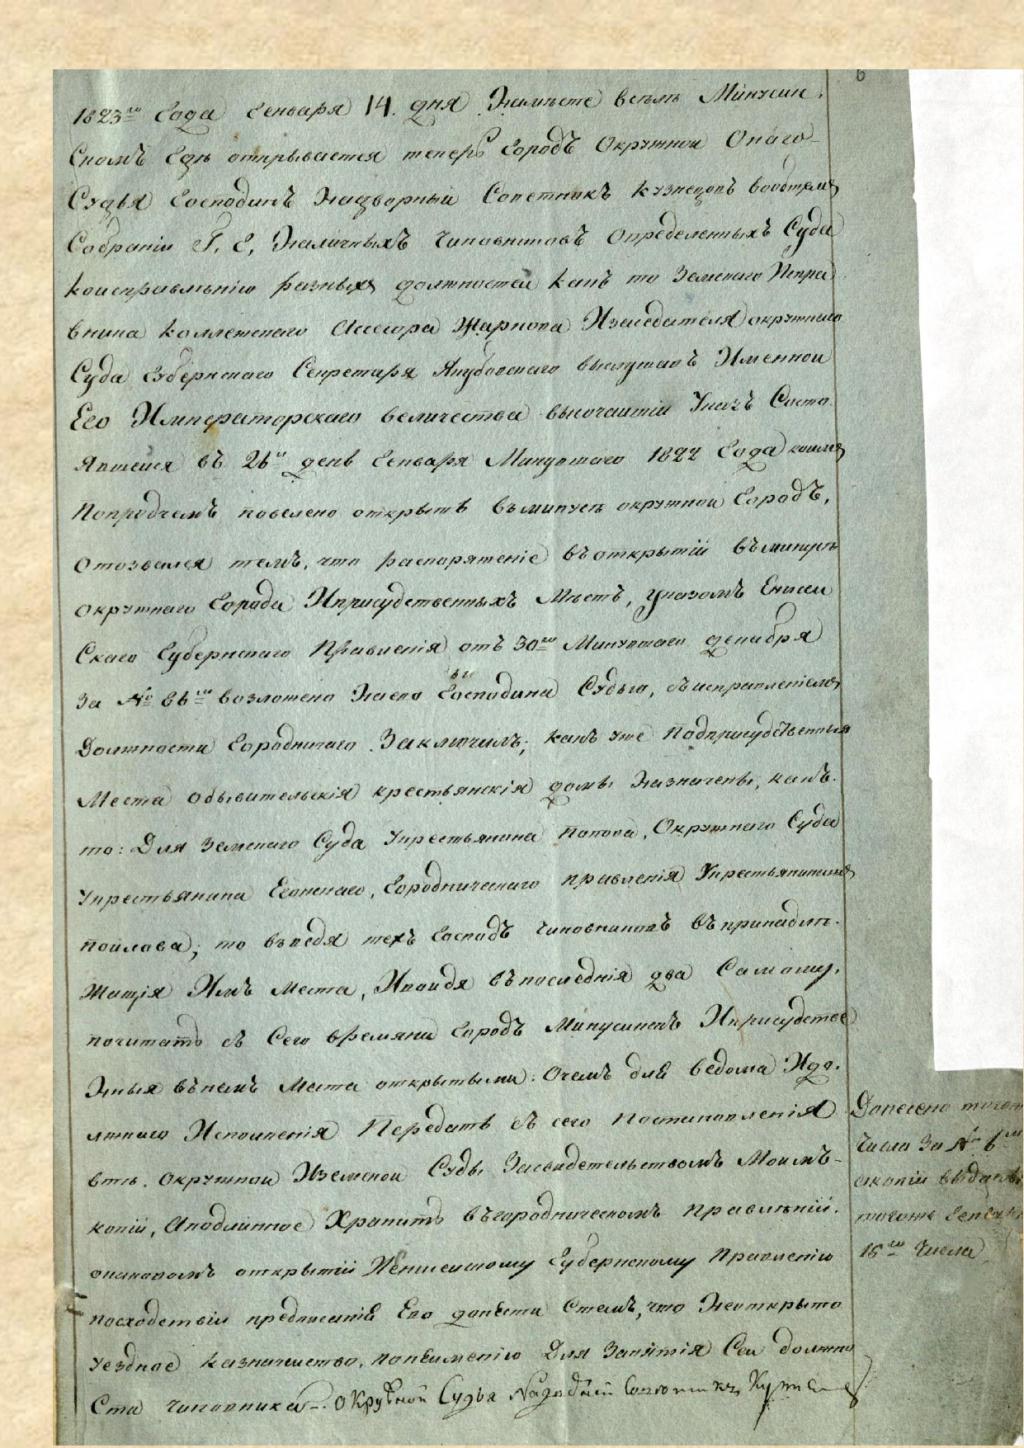 6
1823го Года Генваря 14. дня Наместе всемъ Минусин
скомъ Где открывается теперь Городъ Окружной Онаго
Судья Господинъ Надворный Советникъ Кузнецовъ вообщемъ
Собранiи Г. Г. Наличныхъ Чиновниковъ Определенныхъ Сюда
коисправленiю разныхъ должностей какъ то Земскаго Испра
вника коллежскаго Асессора Жаркова Изаседателя окружнаго
Суда Губернскаго Секретаря Якубовскаго выслушавъ Именной
Его Императорскаго величества высочайшiй Указъ Состо
явшейся въ 26й день Генваря Минувшаго 1822 Года коимъ
Попродчемъ повелено открыть въминусе окружной Городъ,
отозвался темъ, что распоряженiе въоткрытiй въминусе
окружнаго Города Иприсудственныхъ Местъ, указомъ Енисей
Скаго Губернскаго Правленiя отъ 30го Минувшаго декабря
За № возложено Насего Господина Судью, съисправленiемъ
Должности Городничаго. Заключилъ; какъ уже Подприсудственныя
Места обывительскiя крестьянскiя домы Назначены, какъ
то: Для Земскаго Суда Укрестьянина Попова, Окружнаго Суда
Укрестьянина Городническаго правленiя Укрестьянина
то взведя техъ Господъ Чиновниковъ въпринадле
жащiя Имъ Места, Ивойдя въпоследнiя два Самому,
почитать съ Сего времяни Городъ Минусинскъ Иприсудстве
нныя внемъ Места открытыми. Очемъ для ведома Идо
лжнаго Исполненiя Передать съ сего Постановленiя
въ окружной Иземской Суды Засвидетельствомъ Моимъ
копiи, Аподлинное Хранить въгородническомъ правленiй.
отаковомъ открытiй Иенисейскому Губернскому Правленiю
посходствiи предписанiя Его донести Стемъ, что Неоткрыто
уездное казначейство, понеименiю Для Занятiя Сей должно
Сти чиновника. Окружной Судья Надворный Советникъ Кузнецовъ
Донесено тогожъ
Числа За № 6м
акопiи выданы
тогожъ Генваря
15го Числа